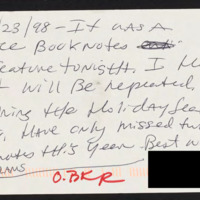 /23/98 - It was A
ce Booknotes
eature tonight. I
t will be repeated,
ring the Holiday Sea
, Have only missed tw
nates this year. Best w
O.BKR